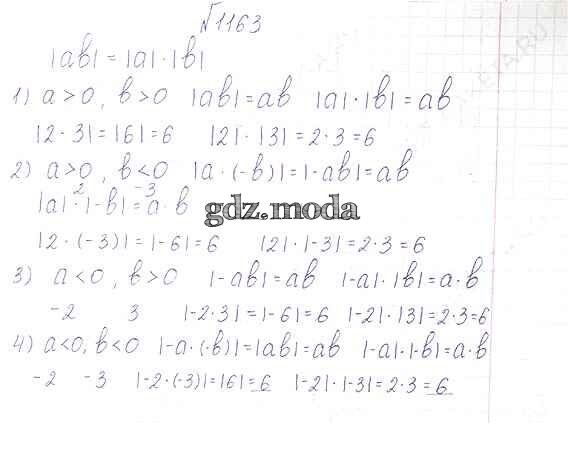 №1163
|ab| = |a|·|b|
1) a>0, b>0 |ab|=ab |a|·|b|=ab
|2·3|=|6|=6 |2|·|3|=2·3=6
2) a>0, b<0 |a·(-b)|=|-ab|=ab
2 -3
|a|·|-b|=a·b
gdz.moda
|2·(-3)|=|-6|=6 |2|·|-3|=2·3=6
3) a<0, b>0 |-ab|=ab |-a|·|b|=a·b
-2 3 |-2·3|=|-6|=6 |-2|·|3|=2·3=6
4) a<0, b<0 |-a·(-b)|=|ab|=ab |-a|·|-b|=a·b
-2 -3 |-2·(-3)|=|6|=6 |-2|·|-3|=2·3=6